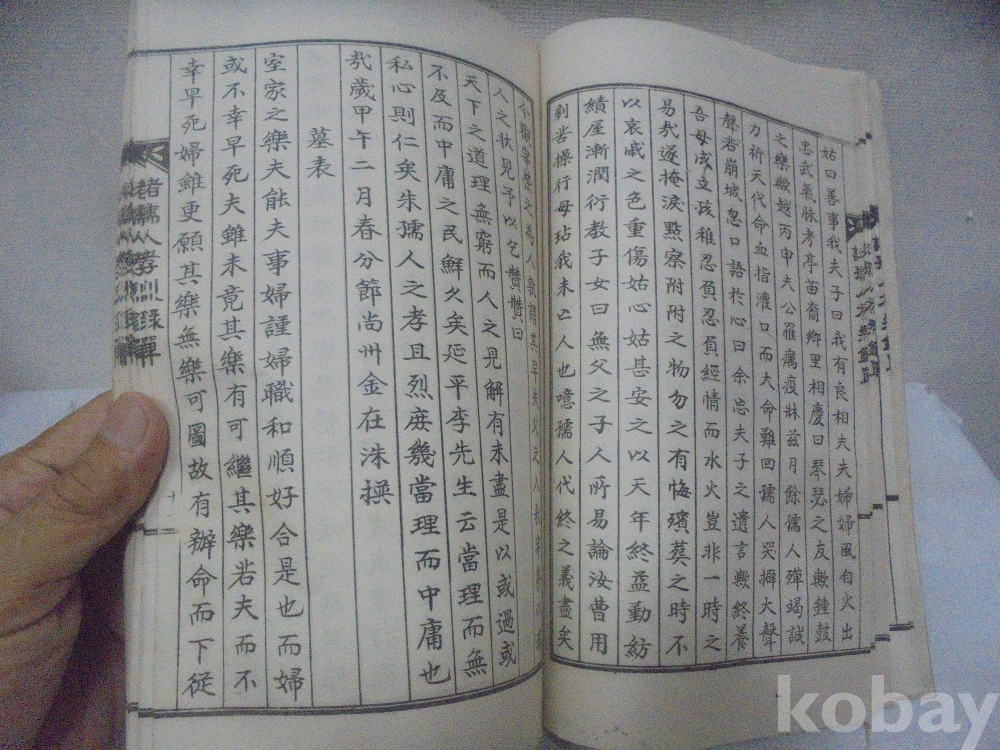 姑曰善事我夫子曰我有良相夫夫婦婦風自火出
忠武氣脉考亭苗裔鄉里相慶曰琴瑟之友歟鍾鼓
之樂歟越丙申夫公罹癘疫牀玆月餘儒人殫竭誠
力祈天代命血指灌口而大命難回孺人哭擗大聲
聲若崩城忽口語於心曰余忘夫子之遺言歟終養
吾母成立孩稚忍負忍負經情而水火豈非一時之
易㢤遂掩淚點察附附之物勿之有悔殯葬之時不
以哀戚之色重傷姑心姑甚安之以天年終益勤紡
績屋漸潤衍教子女曰無父之子人所易論汝曹用
刻苦操行毋玷我未亡人也噫孺人代終之義盡矣
人之狀見予以乞贊贊曰
天下之道理無窮而人之見解有未盡是以或過或
不及而中庸之民鮮久矣延平李先生云當理而無
私心則仁矣朱孺人之孝且烈庶幾當理而中庸也
㢤歲甲午二月春分節尚州金在洙撰
墓表
室家之樂夫能夫事婦謹婦職和順好合是也而婦
或不幸早死夫雖未竟其樂有可繼其樂若夫而不
幸早死婦雖更願其樂無樂可圖故有辦命而下從
孺人孝烈錄單
十
kobay